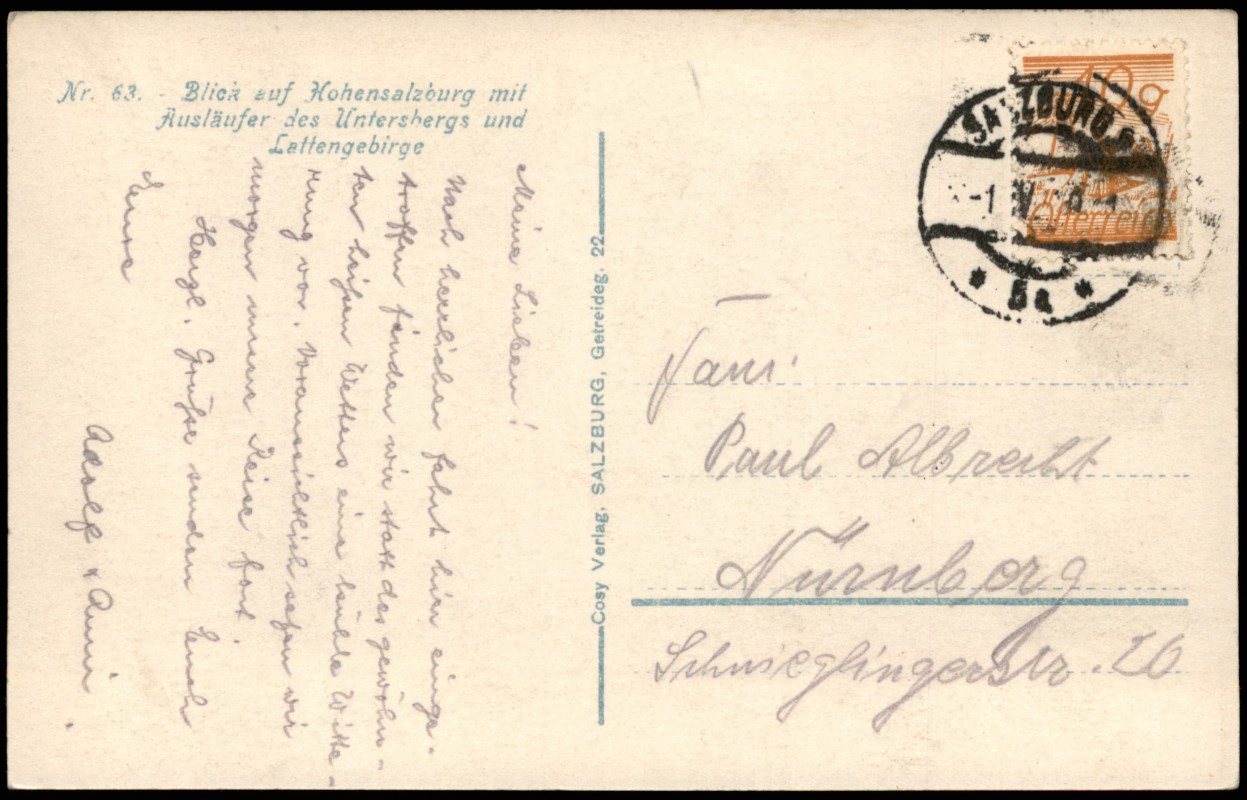 Nr. 63. - Blick auf Hohensalzburg mit
Ausläufer des Untersbergs und
Lattengebirge
Meine Lieben!
Nach herrlicher Fahrt hier einge-
troffen finden wir statt des gewohn-
ten heißen Wetters eine kühle Witte-
rung vor. Voraussichtlich setzen wir
morgen unsere Reise fort.
Herzl. Grüße senden Euch
Adolf & Anni
Cosy Verlag, SALZBURG, Getreideg. 22
10g
Österreich
SALZBURG
5a
Fam.
Paul Albrecht
Nürnberg
Schnieglingerstr. 26